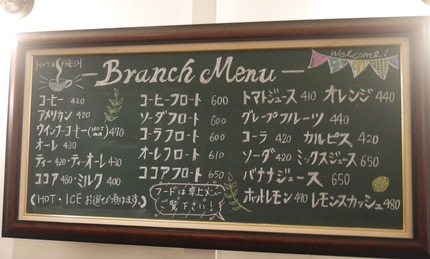 HOT & FRESH
Branch Menu
Welcome!
コーヒー 420
アメリカン 420
ウインナーコーヒー(HOT) 470
オーレ 430
ティー 420・ティーオーレ 430
ココア 480・ミルク 400
(HOT・ICE お選び頂けます。)
コーヒーフロート 600
ソーダフロート 600
コーラフロート 600
オーレフロート 610
ココアフロート 650
フードは卓上メニュー
ご覧下さい!
トマトジュース 410 オレンジ 440
グレープフルーツ 440
コーラ 420 カルピス 420
ソーダ 420 ミックスジュース 650
バナナジュース 650
ホットレモン 410 レモンスカッシュ 480